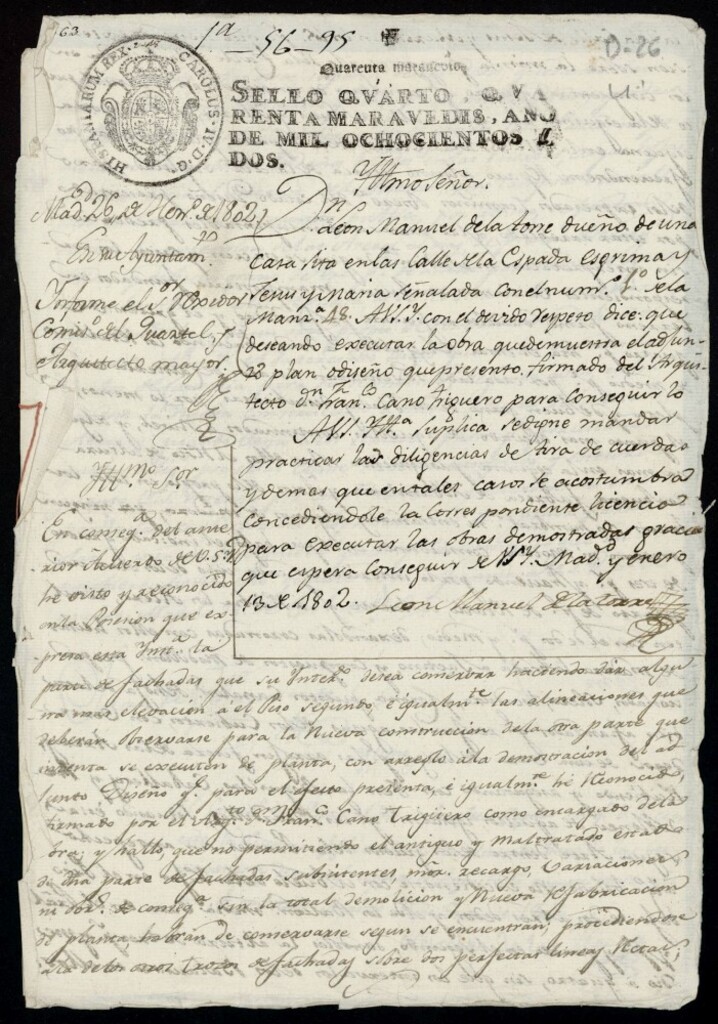 63
1ª-56-95
D-26
HISPANIARUM REX. CAROLUS. IV. D. G.
Quarenta maravedis
SELLO QVARTO, QVA
RENTA MARAVEDIS, AÑO
DE MIL OCHOCIENTOS Y
DOS.
Yltmo Señor.
Dn Leon Manuel de la torre dueño de una
casa sita en las Calle de la Espada esgrima y
Jesus y Maria señalada con el numo 1º de la
Manzª 48. A V.S.Y. con el devido respeto dice: que
deseando executar la obra que demuestra el adjun-
to plan o diseño que presento firmado del Arquit-
tecto dn Franco Cano triguero para conseguir lo
A V.S. Yltª Suplica se digne mandar
practicar las diligencias de tira de cuerda
y demas que en tales casos se acostumbra
Concediendole la Correspondiente licencia
para executar las obras demostradas gracia
que espera Conseguir de V.S.Y. Madd y enero
13 de 1802. Leon Manuel de la torre
Madd 26, de Henrº de 1802,
En su Ayuntamto
Ynforme el Sor Rexidor
Comisº del Quartel, y
Arquitecto mayor.
Yllmo Sor
En conseqª del ante
rior Acuerdo de V.S.Y.
he visto y reconocido
con la Precision que ex-
presa esta Instª la
parte de fachadas que su Interdº desea conservar haciendo dar algu
na mas elevacion a el Piso segundo, é igualmte las alineaciones que
deberán observarse para la Nueva construccion de la otra parte que
intenta se execute de planta, con arreglo á la demostracion del ad
junto Diseño qe para el efecto presenta, é igualmte hé Reconocido
firmado por el Arqto Dn Franco Cano Trigüero como encargado de la
obra; y hallo, que no permitiendo el antiguo y maltratado estado
de dha parte de fachadas subsistentes, mor recargo, Variaciones
ni obrª de conseqª sin la total demolicion y Nueva Refabricacion
de planta habrán de conservarse segun se encuentran; procediendose
de los otros trozos de fachadas sobre dos perfectas lineas Rectas,